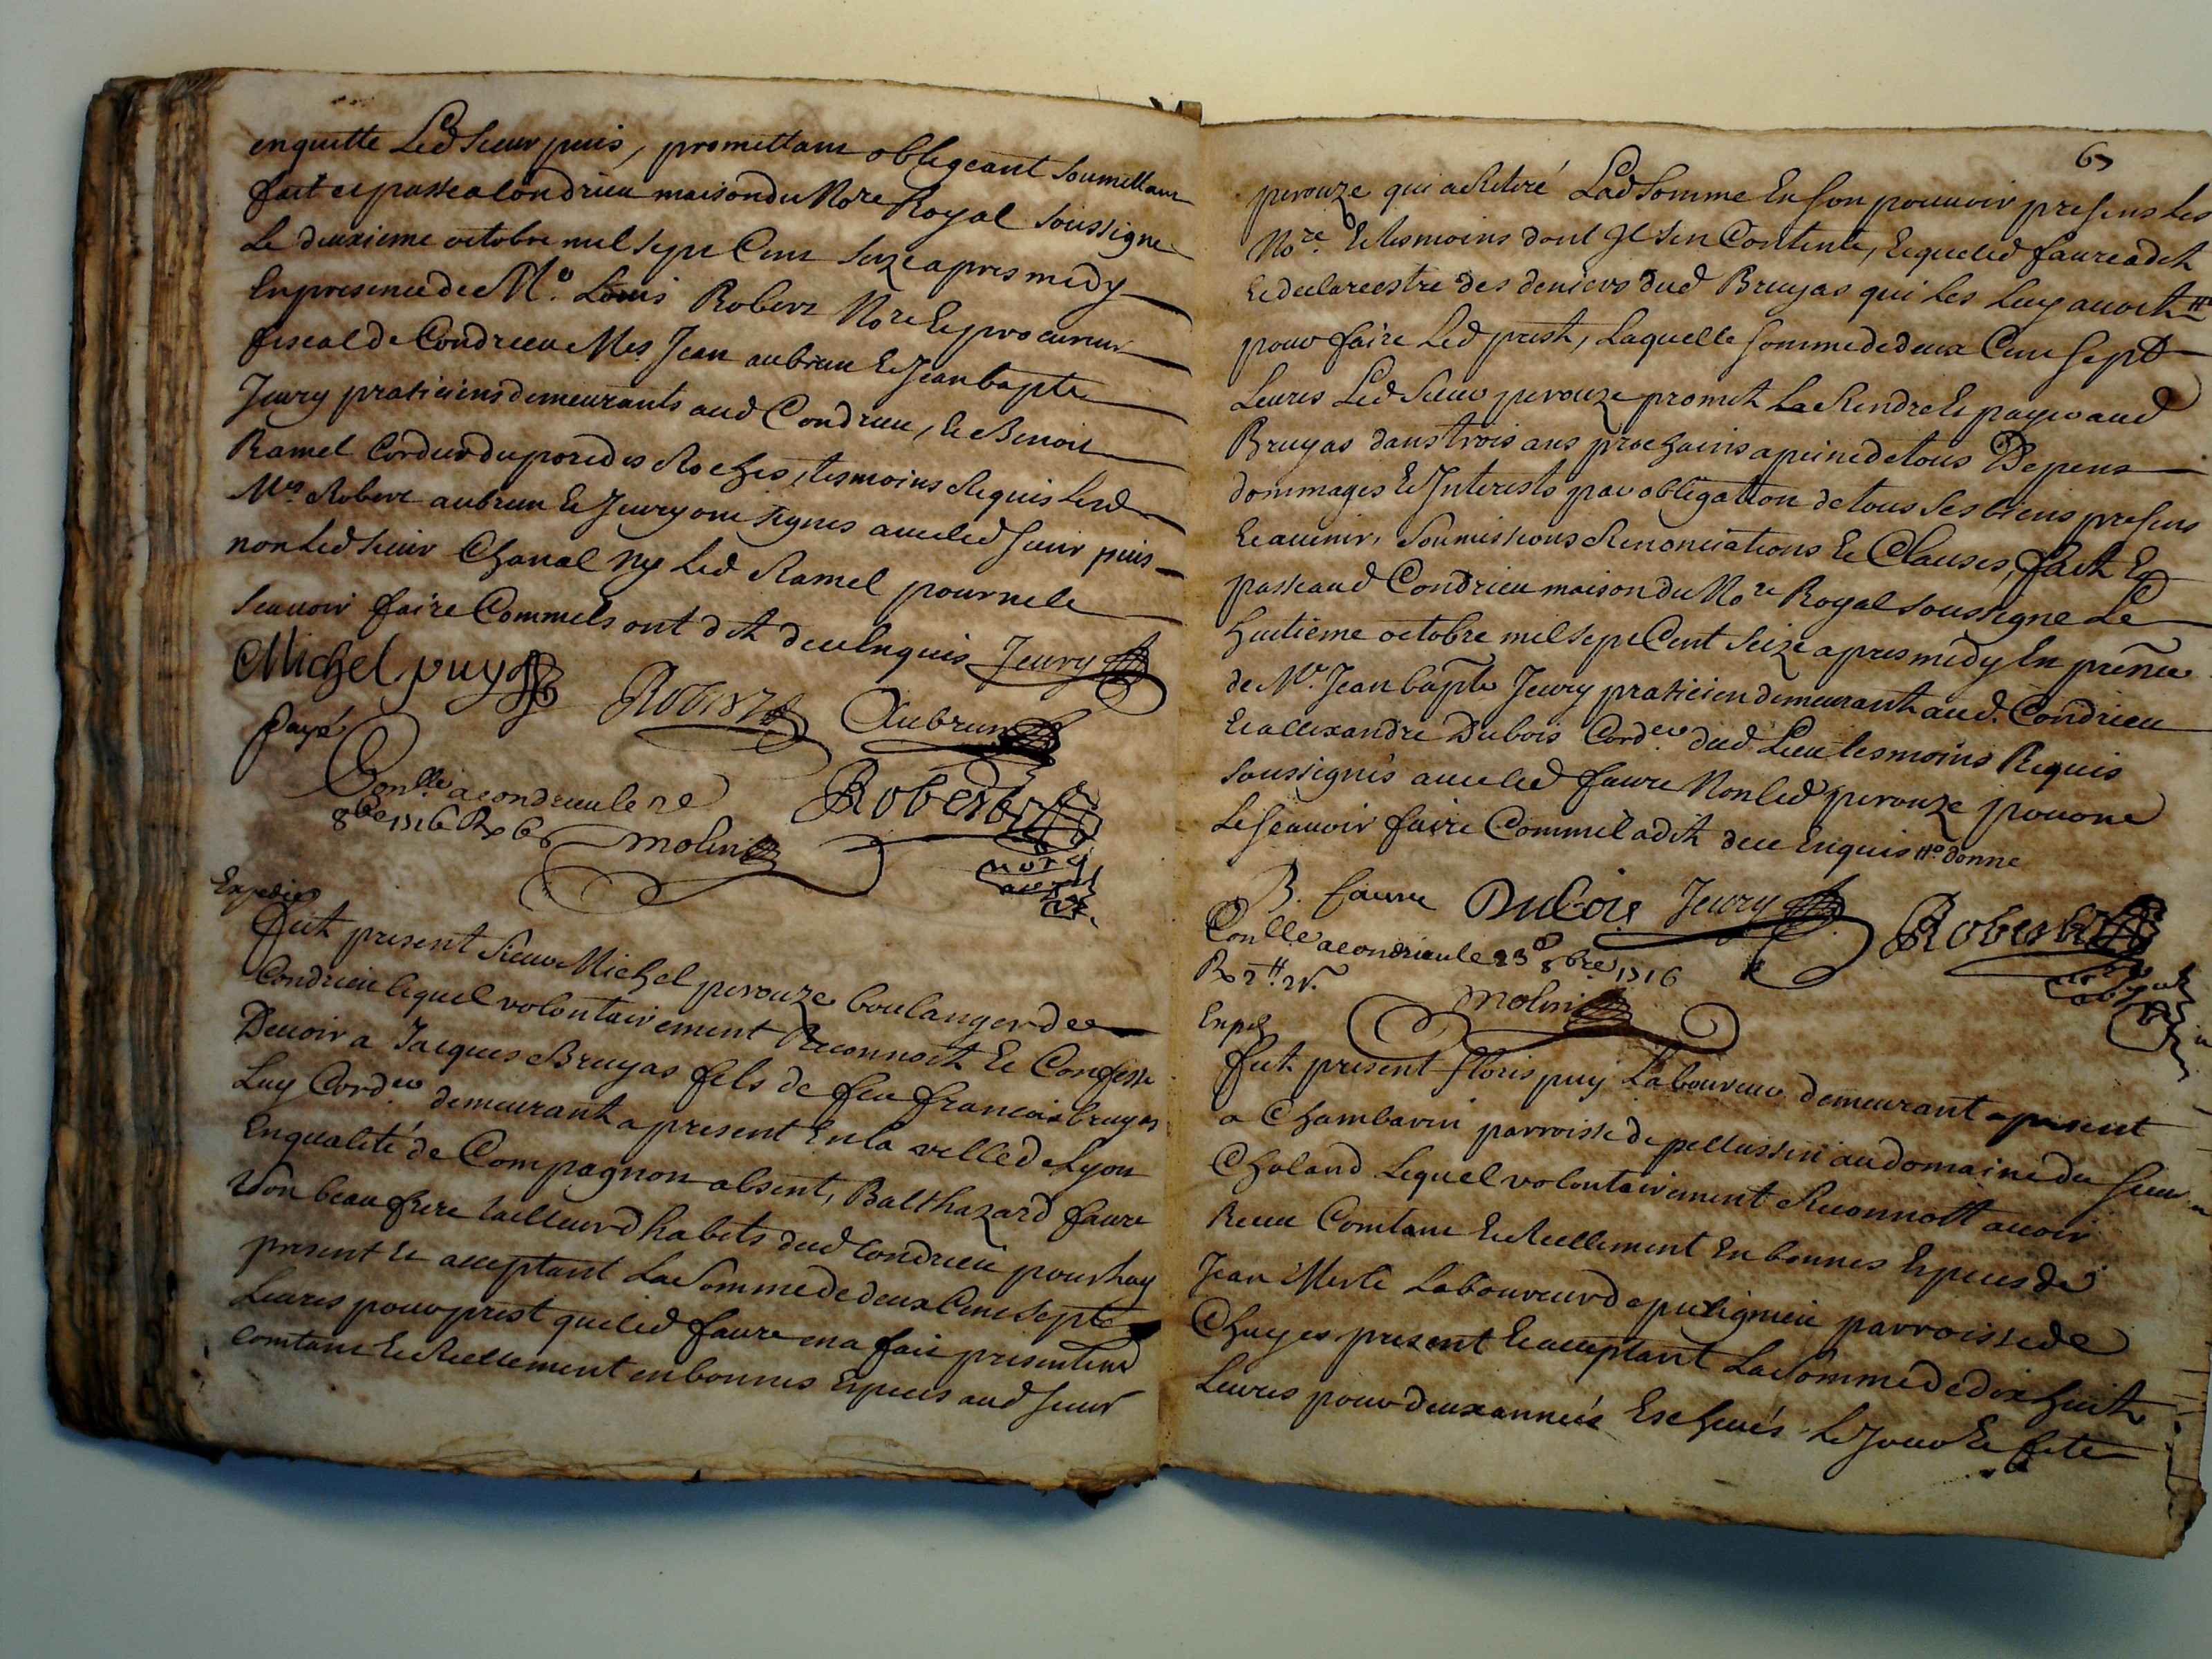 enquitte Led Sieur puis, promettans obligeant Soumettans
fait et passe a Condrieu maison du No.re Royal Soussigne
Le deuxieme octobre mil sept Cens Seize apres midy
En presence de Me. Louis Robert No.re Et procureur
fiscal de Condrieu Mes Jean aubrun Et Jean bapte
Jeury praticiens demeurants aud Condrieu, Et Benoit
Ramel Cord du port des Roches, tesmoins Requis Lesd
Mes Robert aubrun Et Jeury ont Signes avec led Sieur puis
non Led Sieur Chanal ny Led Ramel pour ne le
Scauoir faire Comme ils ont dit deu Enquis Jeury
Michel puy Robert Aubrun
payé
Conlle a condrieu le 2e
8bre 1716 R 6 Robert
molin
Expedie
Fut present Sieur Michel perouze boulanger de
Condrieu lequel volontairement Reconnoit Et Confesse
Deuoir a Jacques Bruyas fils de feu francois bruyas
Luy Corder demeurant a present En la ville de Lyon
En qualité de Compagnon absent, Balthazard faure
Son beau frere tailleur dhabits dud Condrieu pour luy
present Et acceptant La Somme de deux Cens Sept
Liures pour prest que led faure en a fait presentemt
Comtant Et Reellement en bonnes Especes aud Sieur
67
perouze qui a Retiré Lad Somme En Son pouuoir presens Les
No.re Et tesmoins dont Il Sen Contente, Et que led faure a dit
Et declare estre des deniers dud Bruyas qui Les Luy auoit #
pour faire Led prest, Laquelle Somme de deux Cens Sept
Liures Led Sieur perouze promet La Rendre Et payer aud
Bruyas dans trois ans prochains a peine de tous Depens
dommages Et Interests par obligation de tous Ses biens presens
Et auenir, Soumissions Renonciations Et Clauses, fait Et
passe aud Condrieu maison du No.re Royal Soussigne Le
huitieme octobre mil Sept Cent Seize apres midy En prence
de Me. Jean bapte Jeury praticien demeurant aud. Condrieu
Et allexandre Dubois Corder dud Lieu tesmoins Requis
Soussignés auec led faure Non led perouze pour ne
Le Scauoir faire Comme il a dit deu Enquis # donné
B. faure Dubois Jeury Robert
Conlle a condrieu le 23e 8bre 1716
R 2# 2s.
molin
Exped
Fut present floris puy Laboureur demeurant a present
a Chambarin parroisse de pellussin au domaine du Sieur
Choland Lequel volontairement Reconnoît auoir
Receu Comtant Et Reellement En bonnes Especes de
Jean Merle Laboureur de parroisse de
Chuyes present Et acceptant La Somme de dix huit
Liures pour deux années Escheues Le Jour Et fete